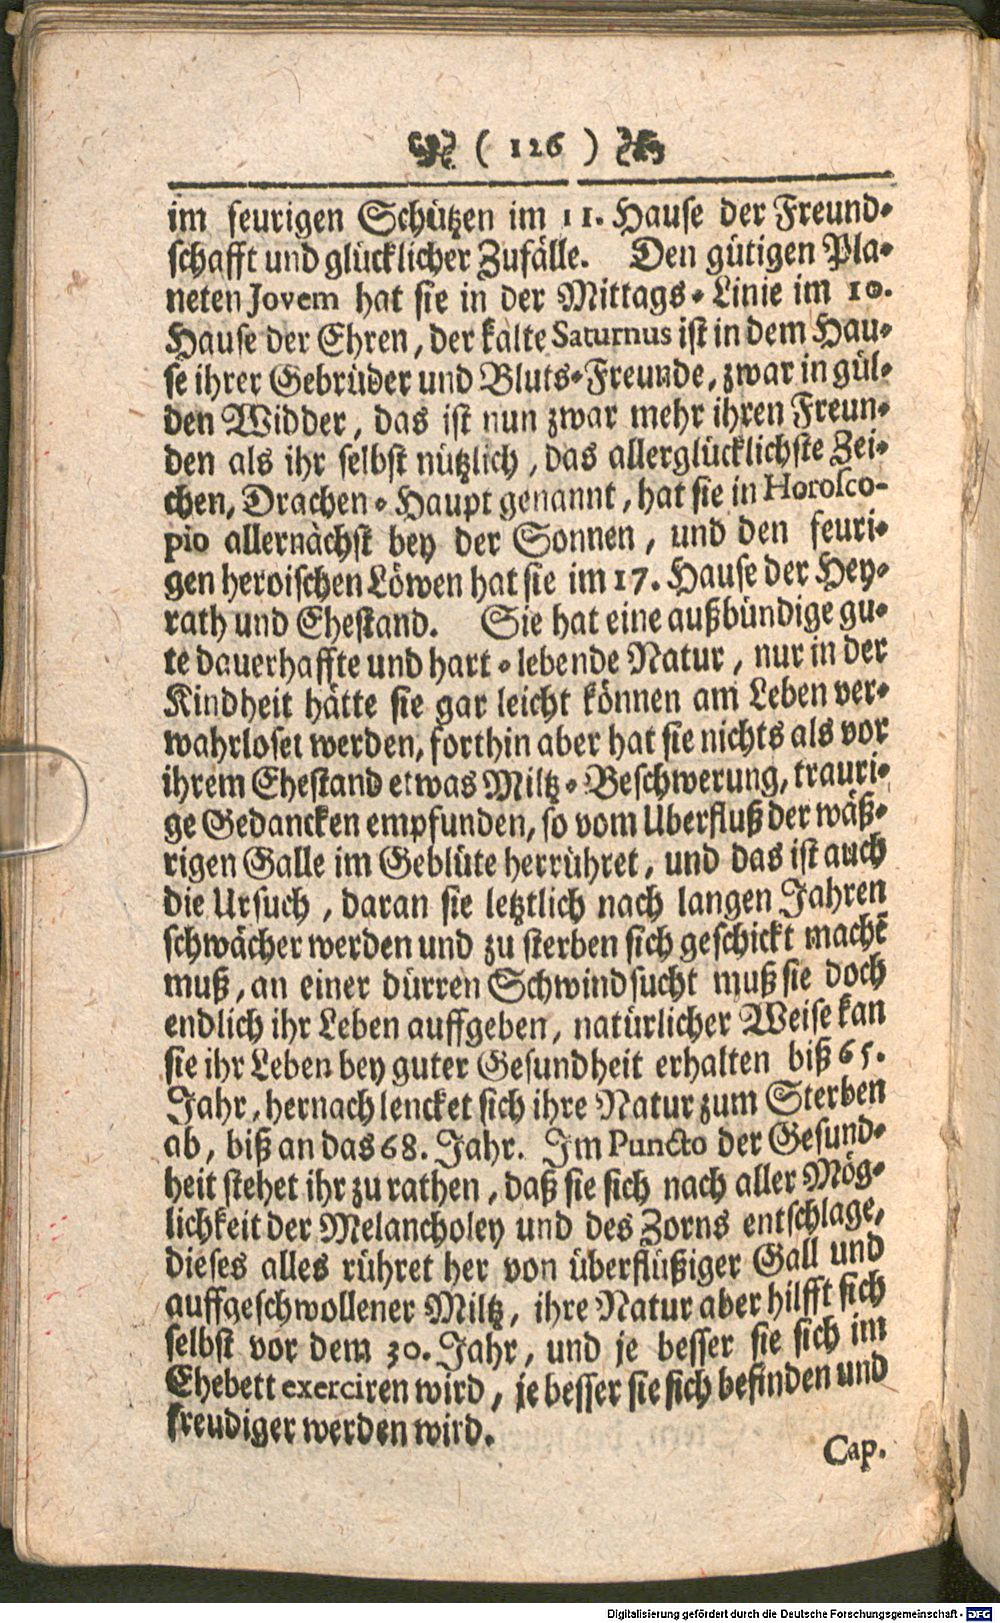 ( 126 )
im feurigen Schützen im 11. Hause der Freund-
schafft und glücklicher Zufälle. Den gütigen Pla-
neten Jovem hat sie in der Mittags-Linie im 10.
Hause der Ehren, der kalte Saturnus ist in dem Hau-
se ihrer Gebrüder und Bluts-Freunde, zwar in gül-
den Widder, das ist nun zwar mehr ihren Freun-
den als ihr selbst nützlich, das allerglücklichste Zei-
chen, Drachen-Haupt genannt, hat sie in Horosco-
pio allernächst bey der Sonnen, und den feuri-
gen heroischen Löwen hat sie im 17. Hause der Hey-
rath und Ehestand. Sie hat eine außbündige gu-
te dauerhaffte und hart-lebende Natur, nur in der
Kindheit hätte sie gar leicht können am Leben ver-
wahrloset werden, forthin aber hat sie nichts als vor
ihrem Ehestand etwas Miltz-Beschwerung, trauri-
ge Gedancken empfunden, so vom Uberfluß der wäß-
rigen Galle im Geblüte herrühret, und das ist auch
die Ursuch, daran sie letztlich nach langen Jahren
schwächer werden und zu sterben sich geschickt machē
muß, an einer dürren Schwindsucht muß sie doch
endlich ihr Leben auffgeben, natürlicher Weise kan
sie ihr Leben bey guter Gesundheit erhalten biß 65.
Jahr, hernach lencket sich ihre Natur zum Sterben
ab, biß an das 68. Jahr. Im Puncto der Gesund-
heit stehet ihr zu rathen, daß sie sich nach aller Mög-
lichkeit der Melancholey und des Zorns entschlage,
dieses alles rühret her von überflüßiger Gall und
auffgeschwollener Miltz, ihre Natur aber hilfft sich
selbst vor dem 30. Jahr, und je besser sie sich im
Ehebett exerciren wird, je besser sie sich befinden und
freudiger werden wird.
Cap.
Digitalisierung gefördert durch die Deutsche Forschungsgemeinschaft - DFG